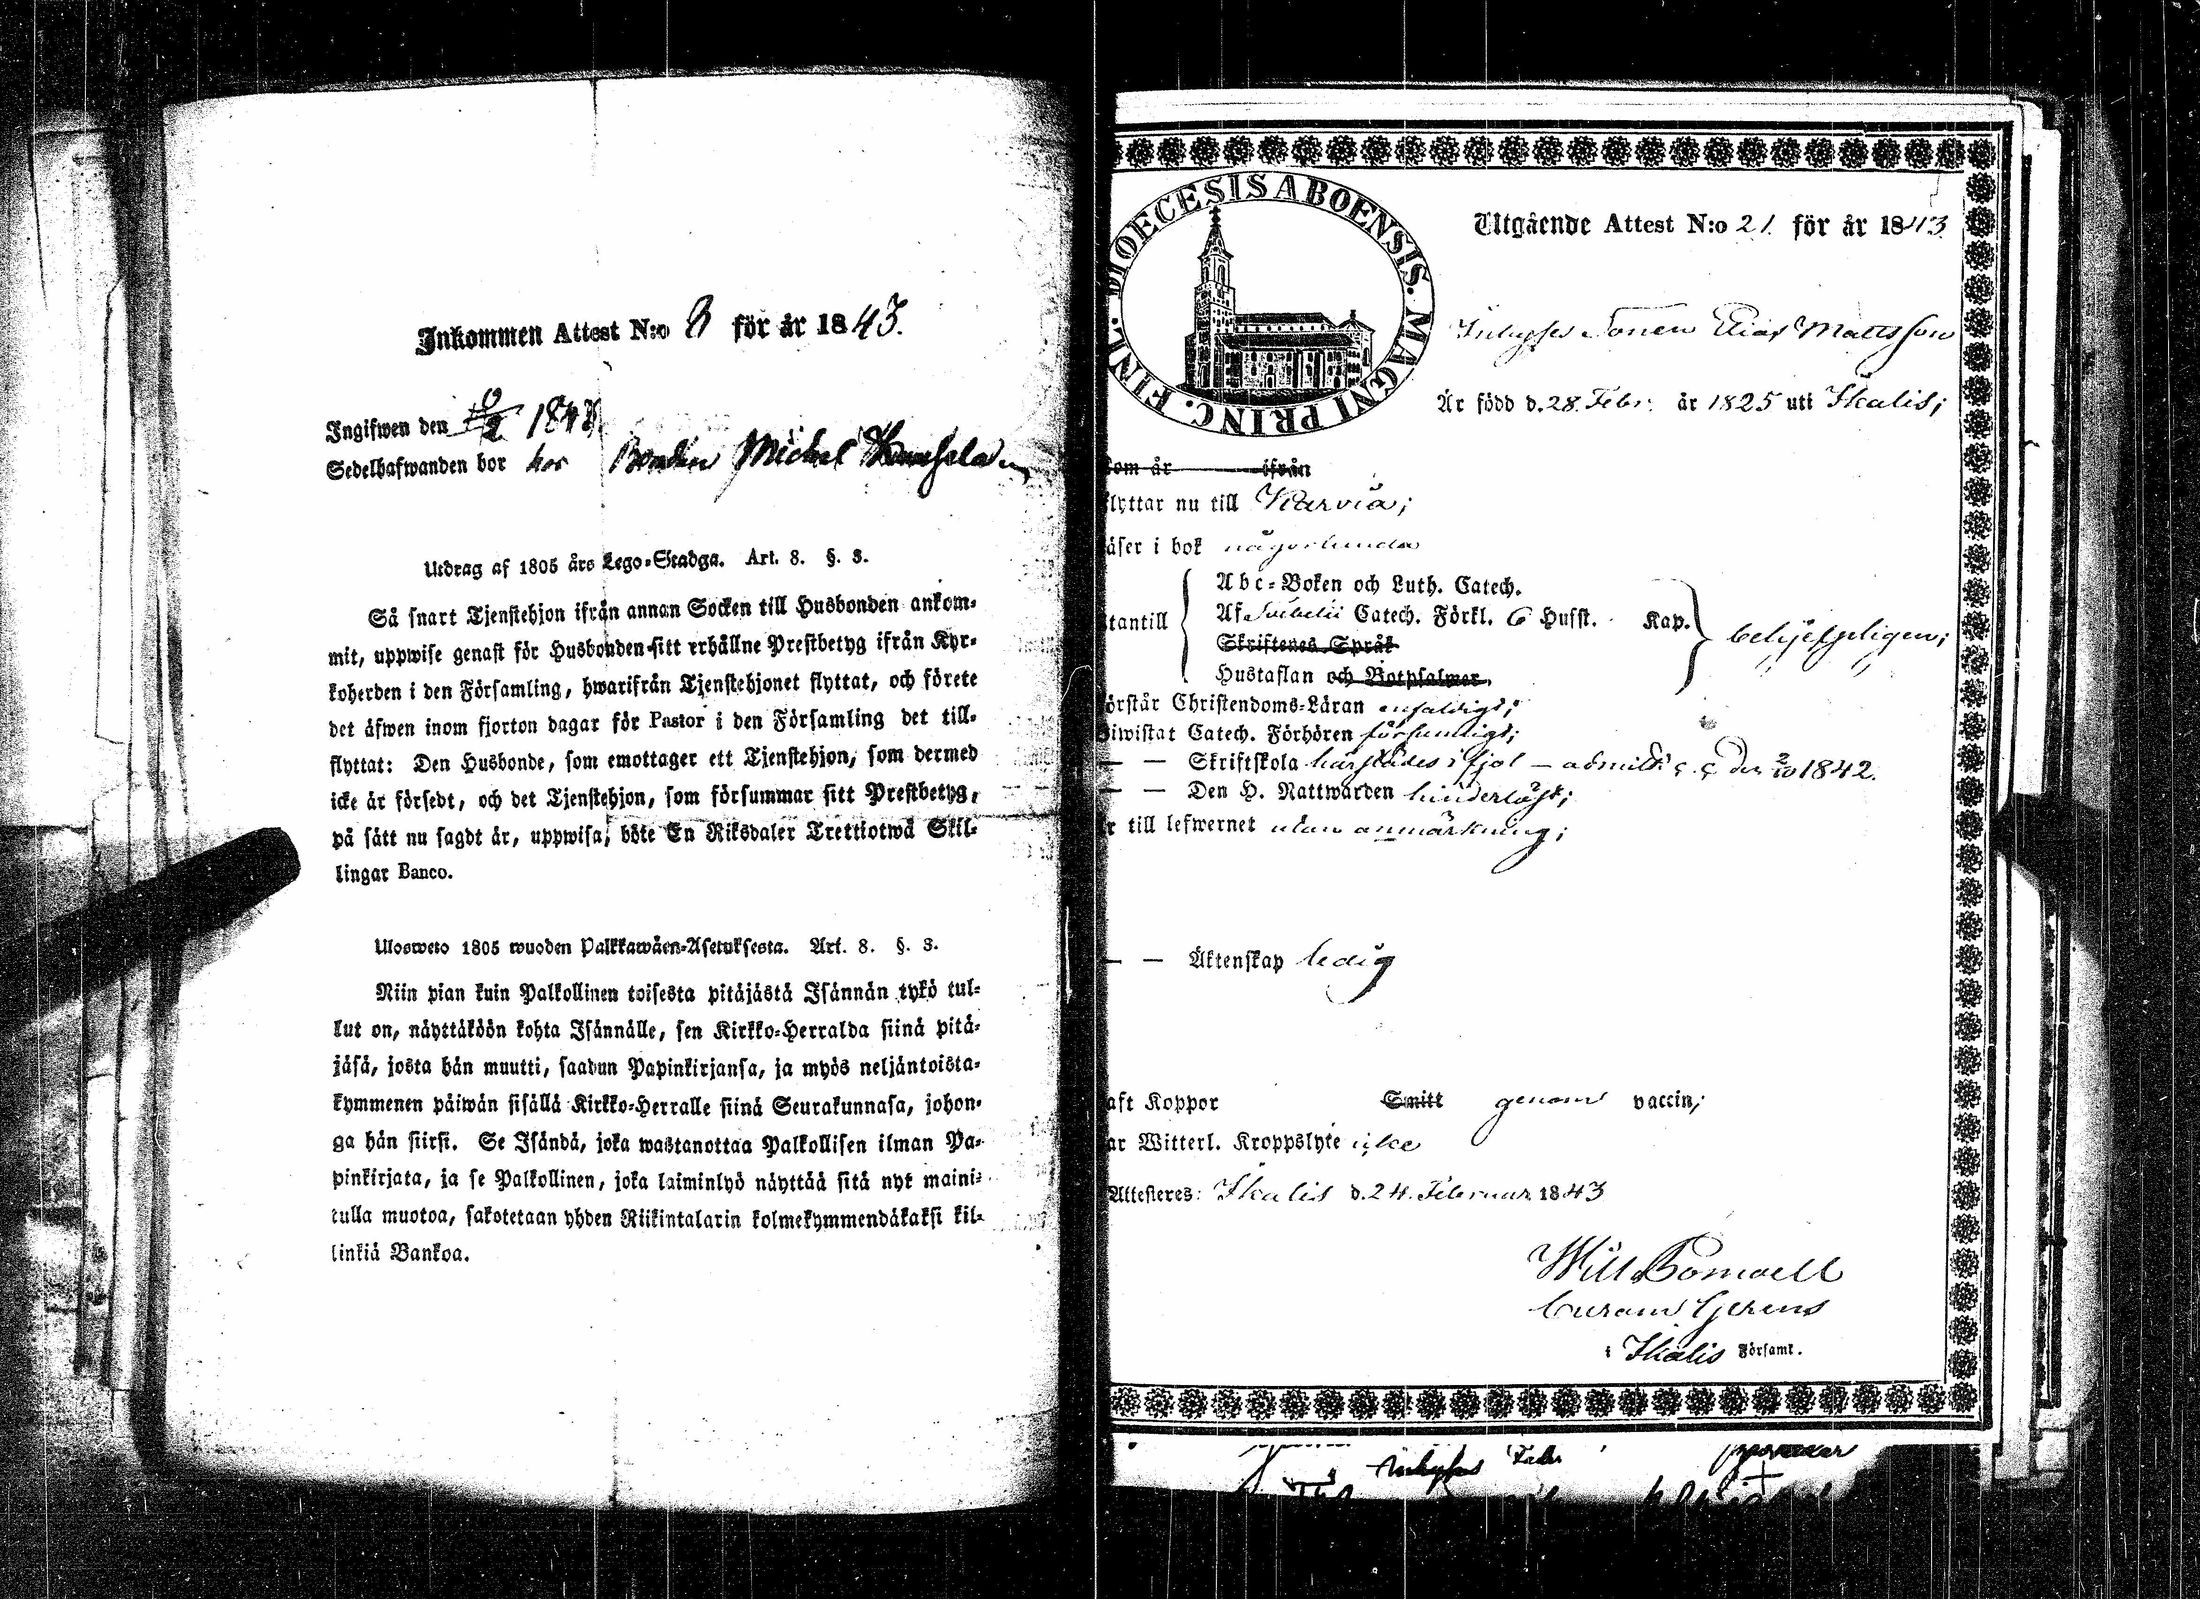 Inkommen Attest N:o 3 för år 1843.
Ingifwen den 1843
Sedelhafwanden bor hos Bonden Michel
Utdrag af 1805 års Lego-Stadga. Art. 8. §. 3.
Så snart Tjenstehjon ifrån annan Socken till Husbonden ankom-
mit, uppwise genast för Husbonden sitt erhållne Prestbetyg ifrån Kyr-
koherden i den Församling, hwarifrån Tjenstehjonet flyttat, och förete
det äfwen inom fjorton dagar för Pastor i den Församling det till-
flyttat: Den Husbonde, som emottager ett Tjenstehjon, som dermed
icke är försedt, och det Tjenstehjon, som försummar sitt Prestbetyg,
på sätt nu sagdt är, uppwisa, böte En Riksdaler Trettiotwå Skil-
lingar Banco.
Ulosweto 1805 wuoden Palkkawäen-Asetuksesta. Art. 8. §. 3.
Niin pian kuin Palkollinen toisesta pitäjästä Isännän tykö tul-
lut on, näyttäköön kohta Isännälle, sen Kirkko-Herralda siinä pitä-
jäsä, josta hän muutti, saadun Papinkirjansa, ja myös neljäntoista-
kymmenen päiwän sisällä Kirkko-Herralle siinä Seurakunnasa, johon-
ga hän siirsi. Se Isändä, joka wastanottaa Palkollisen ilman Pa-
pinkirjata, ja se Palkollinen, joka laiminlyö näyttää sitä nyt maini-
tulla muotoa, sakotetaan yhden Riikintalarin kolmekymmendäkaksi kil-
linkiä Bankoa.
DIOECESIS ABOENSIS. MAGNI PRINC. FINL.
Utgående Attest N:o 21 för år 1843
Inhyses Sonen Elias Mattsson
Är född d. 28. Febr. år 1825 uti Ikalis;
kom år ifrån
flyttar nu till Karvia;
äser i bok någorlunda
Abc-Boken och Luth. Catech.
tantill Af Svebelii Catech. Förkl. 6 Husst. Kap. behjelpeligen;
Skriftenes Språk
Hustaflan och Botpsalmer.
örstår Christendoms-Läran enfaldigt;
Biwistat Catech. Förhören försumligt;
— — Skriftskola härstädes i fjol — den 2/10 1842.
— — Den H. Nattwarden hinderlöst;
r till lefwernet utan anmärkning;
— — Äktenskap ledig
aft Koppor Smitt genom vaccin;
ar Witterl. Kroppslyte icke
Attesteres: Ikalis d. 24. Februar. 1843
Will Bomaell
Curam Gerens
i Ikalis Församl.